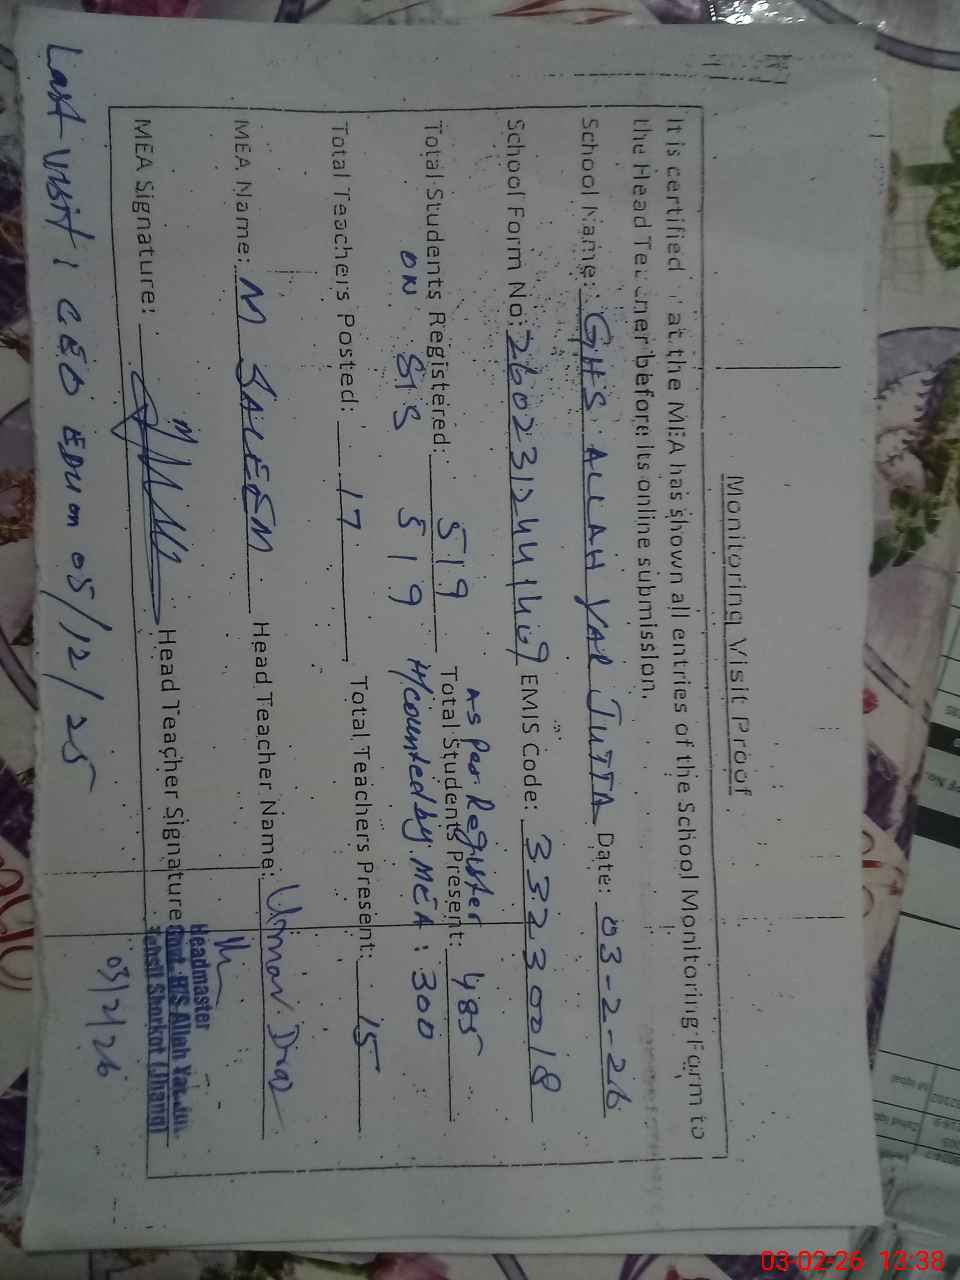 Monitoring Visit Proof
It is certified that the MEA has shown all entries of the School Monitoring Form to
the Head Teacher before its online submission.
School Name: GHS ALLAH YAR JUTTA Date: 03-2-26
School Form No: EMIS Code: 33230018
As Per Register
Total Students Registered: 519 Total Students Present: 485
ON SIS 519 H/counted by MEA: 300
Total Teachers Posted: 17 Total Teachers Present: 15
MEA Name: M SALEEM Head Teacher Name: Umar
MEA Signature: Head Teacher Signature
Headmaster
Govt. H/S Allah Yar
Tehsil Shorkot (Jhang)
03/2/26
Last visit: CEO EDU on 05/12/25
03-02-26 13:38